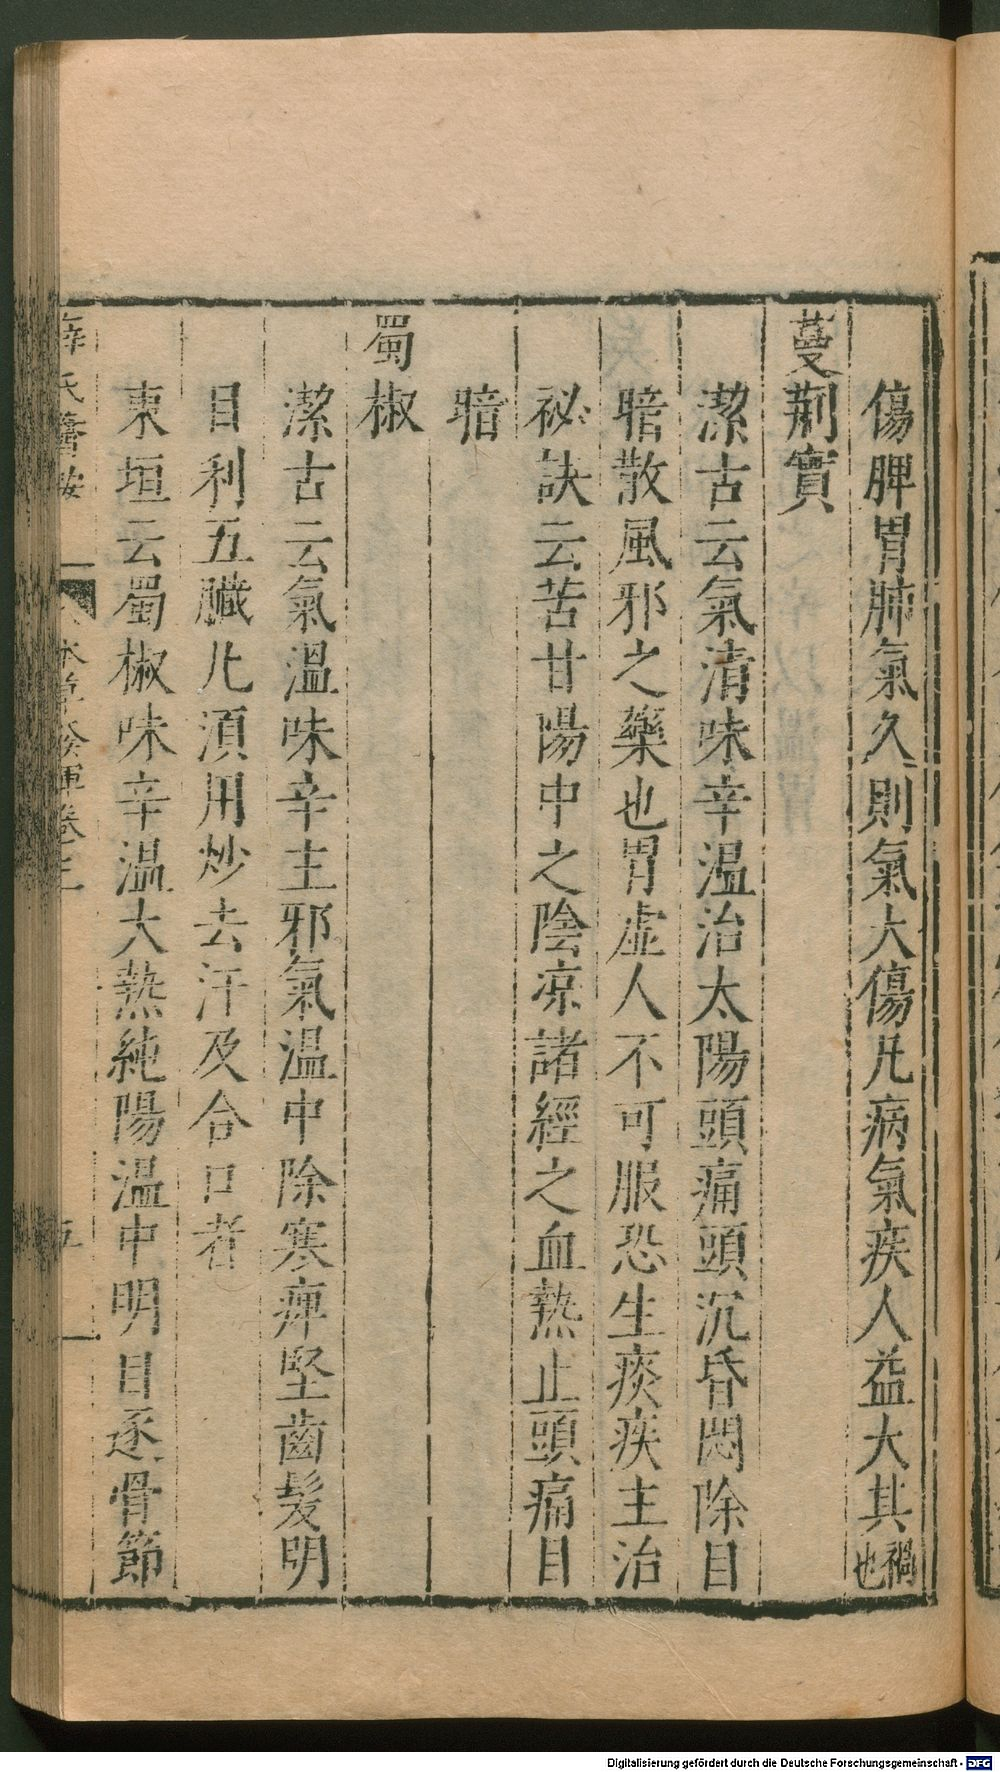 傷脾胃肺氣久則氣大傷凡病氣疾人益大其禍也
蔓荆實
潔古云氣清味辛温治太陽頭痛頭沉昏悶除目
暗散風邪之藥也胃虛人不可服恐生痰疾主治
祕訣云苦甘陽中之陰凉諸經之血熱止頭痛目
暗
蜀椒
潔古云氣温味辛主邪氣温中除寒痺堅齒髮明
目利五臟凡須用炒去汗及合口者
東垣云蜀椒味辛温大熱純陽温中明目逐骨節
薛氏醫按
本草發揮卷三
五
Digitalisierung gefördert durch die Deutsche Forschungsgemeinschaft - DFG